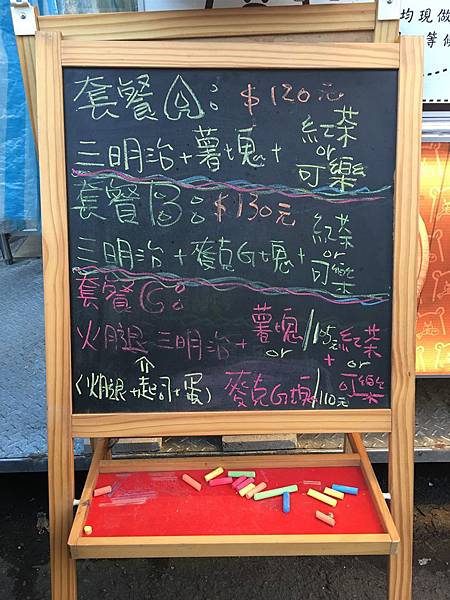 均現做
等候
套餐A: $120元
三明治+薯塊+紅茶or可樂
套餐B: $130元
三明治+麥克G塊+紅茶or可樂
套餐C:
火腿三明治+薯塊/105元+紅茶
or or
(火腿+起司+蛋) 麥克G塊/110元 可樂